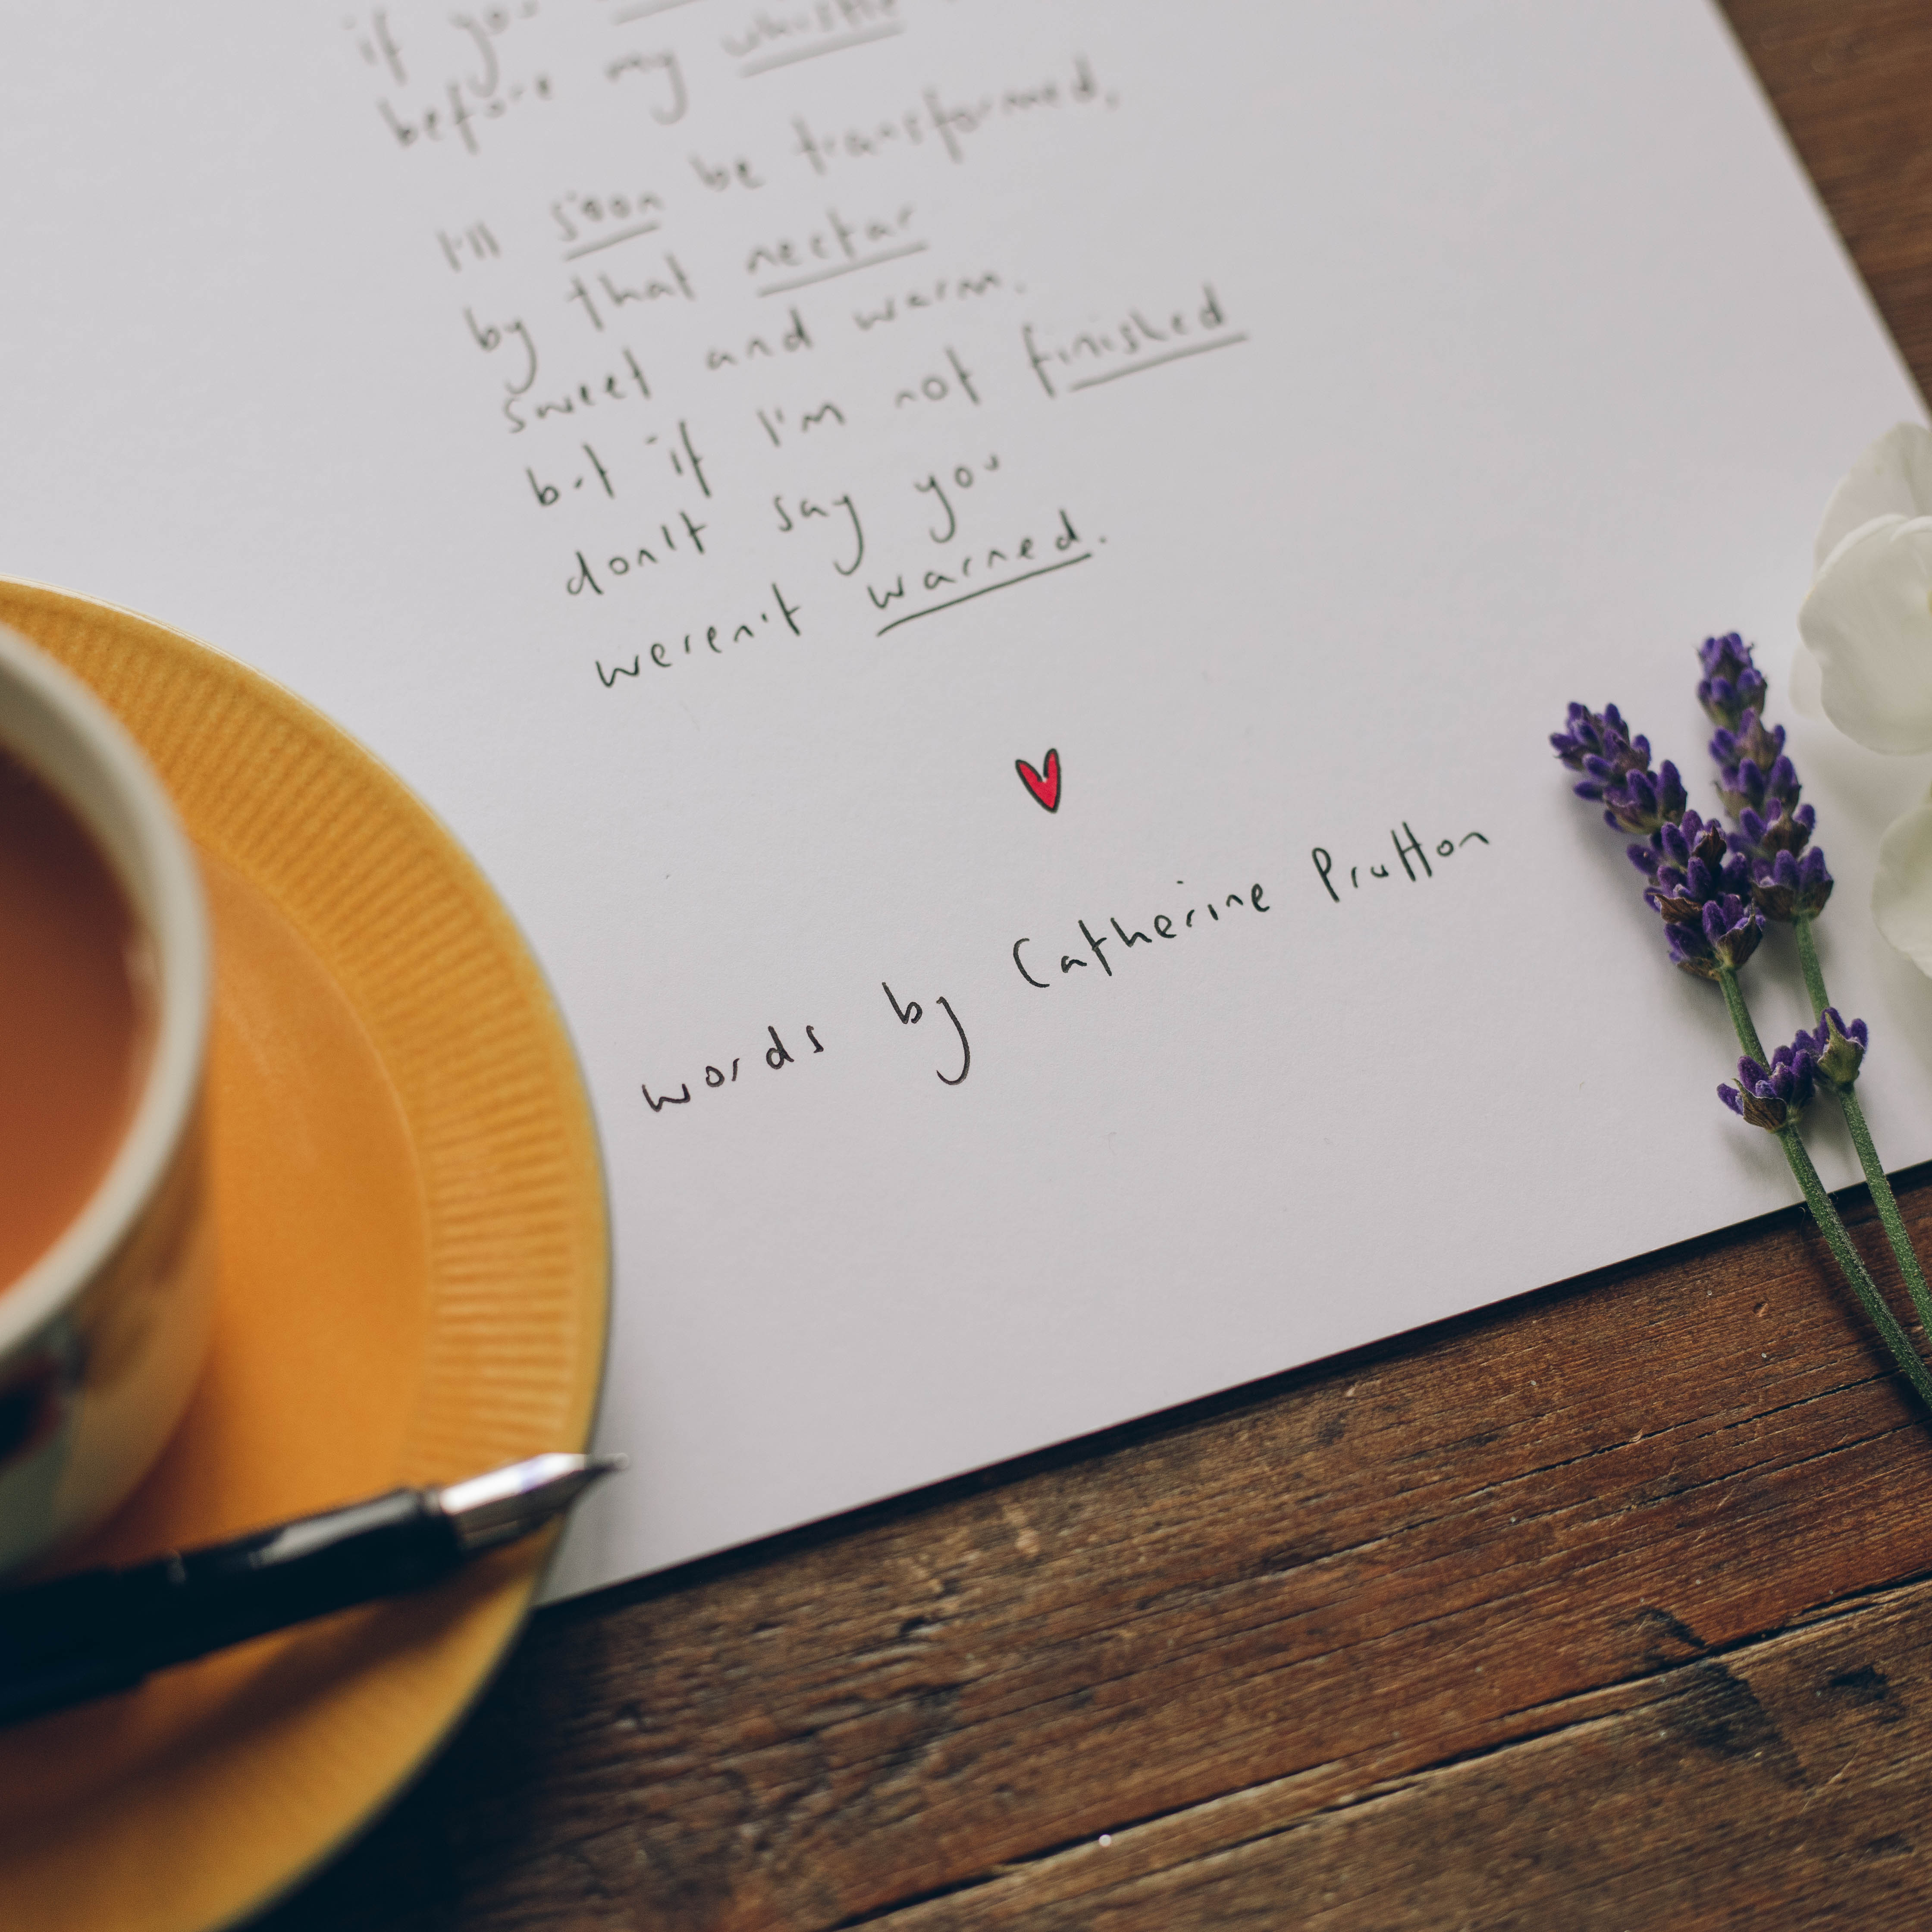 if you
before my whistle
I'll soon be transformed,
by that nectar
sweet and warm.
but if I'm not finished
don't say you
weren't warned.
words by Catherine Prutton